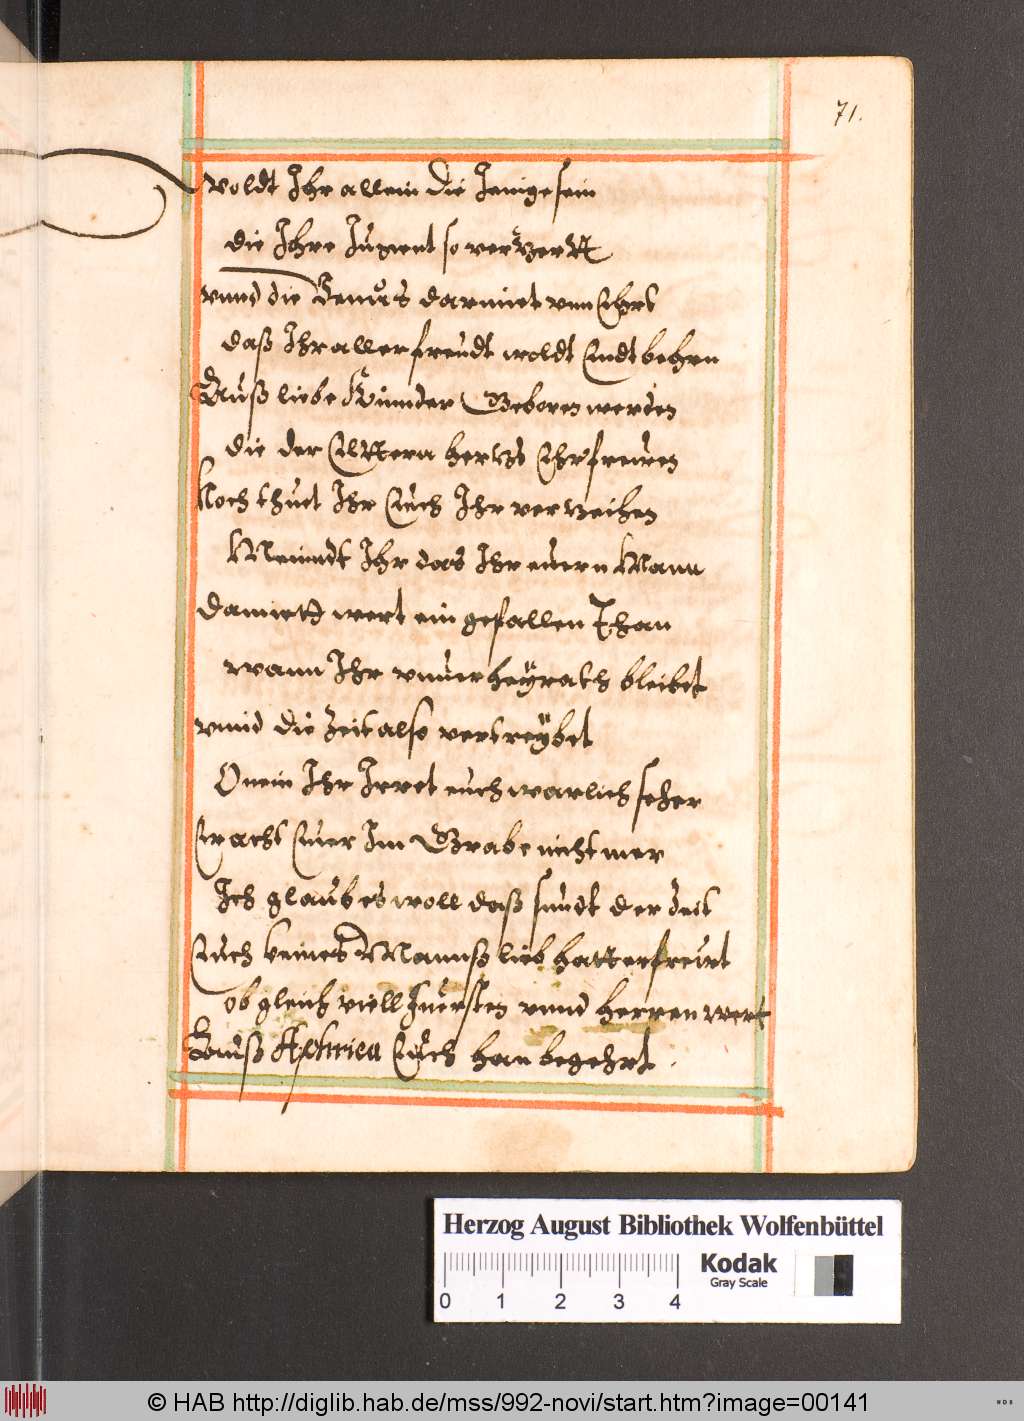 71.
woldt Ihr allein die Jenige sein
die Ihre Jugent so verzert
vnnd die Venus darmiet vnn Ehrt
daß Ihr aller freudt woldt endtbehrn
Auß liebe Kinnder Geboren werden
die der Elttern hertz Ehrfreuen
Noch thuet Ihr Euch Ihr verzeihen
Meinndt Ihr das Ihr euern Mann
Damiett wert ein gefallen Than
wann Ihr vnuerheyrath bleibet
vnnd die Zeit also vertreybet
O nein Ihr Irret euch warlich seher
Er acht Euer Im Grabe nicht mer
Ich glaub es woll daß sundt der Zeit
Euch keines Mannß lieb hatt erfreut
ob gleich viell Fuersten vnnd Herren wert
Auß Aphrica Euch han begehrt .
Herzog August Bibliothek Wolfenbüttel
Kodak
Gray Scale
0 1 2 3 4
© HAB http://diglib.hab.de/mss/992-novi/start.htm?image=00141